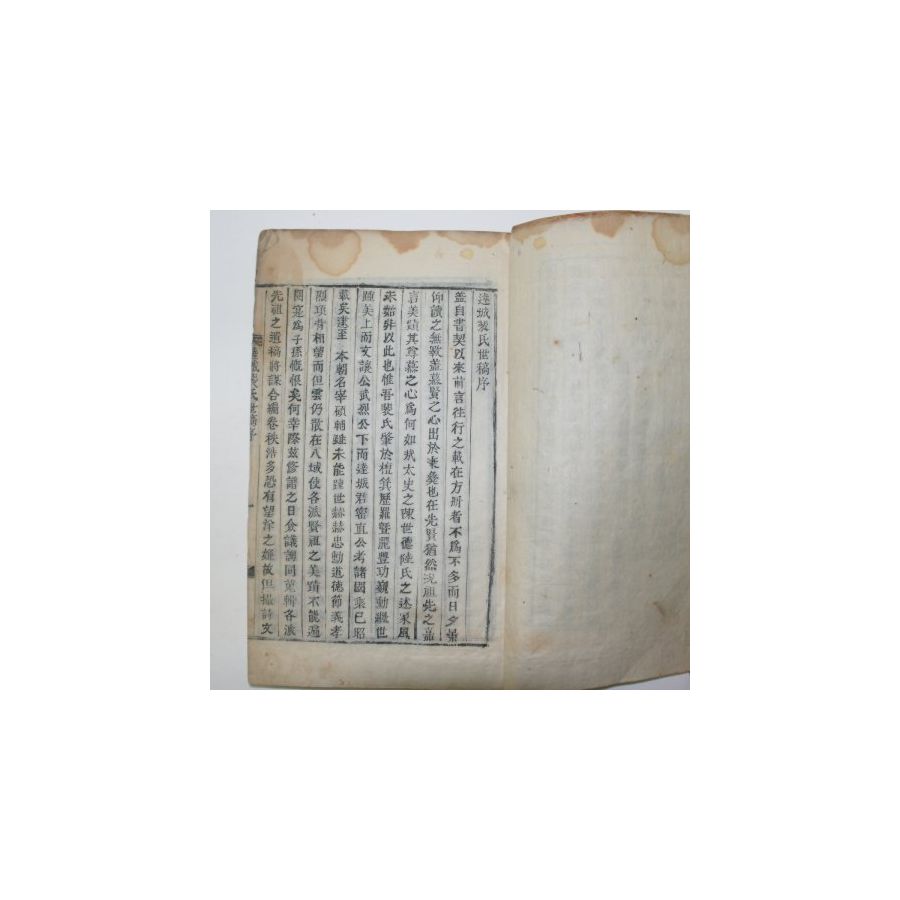 達城裴氏世稿序
蓋自書契以來前言往行之載在方冊者不爲不多而日夕
仰讀之無斁蓋慕賢之心出於秉彝也在先賢猶然況祖先之嘉
言美蹟其尊慕之心爲何如哉太史之陳世德陸氏之述家風
未始非以此也惟吾裴氏肇於檀箕歷羅曁麗豐功巍勳繼世
踵美上而文讓公武烈公下而達城君密直公考諸國乘已昭
載矣逮至 本朝名宰碩輔雖未能踵世赫赫忠勳道德節義孝
烈項背相望而但雲仍散在八域使各派賢祖之美蹟不能遍
閱寔爲子孫慨恨矣何幸際玆修譜之日僉議詢同蒐輯各派
先祖之遺稿將謀合編卷秩浩多恐有望洋之 故但撮詩文
達城裴氏世稿序